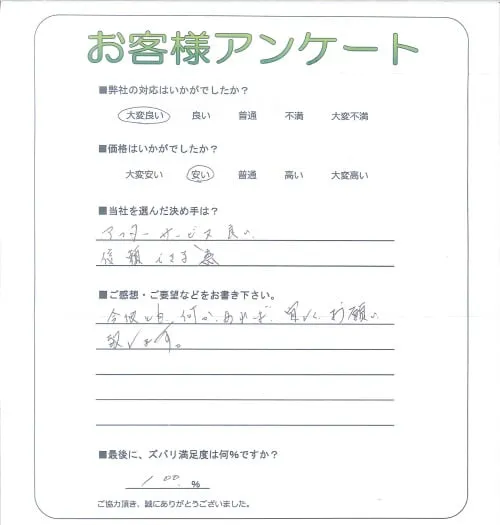 お客様アンケート
■弊社の対応はいかがでしたか？
大変良い 良い 普通 不満 大変不満
■価格はいかがでしたか？
大変安い 安い 普通 高い 大変高い
■当社を選んだ決め手は？
アフターサービス良い
信頼できる
■ご感想・ご要望などをお書き下さい。
今後とも何かあれば宜しくお願い
致します。
■最後に、ズバリ満足度は何%ですか？
100 %
ご協力頂き、誠にありがとうございました。